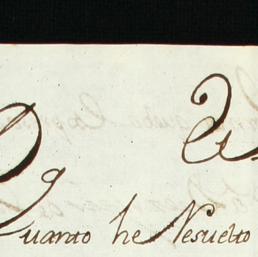 Quanto he Resuelto